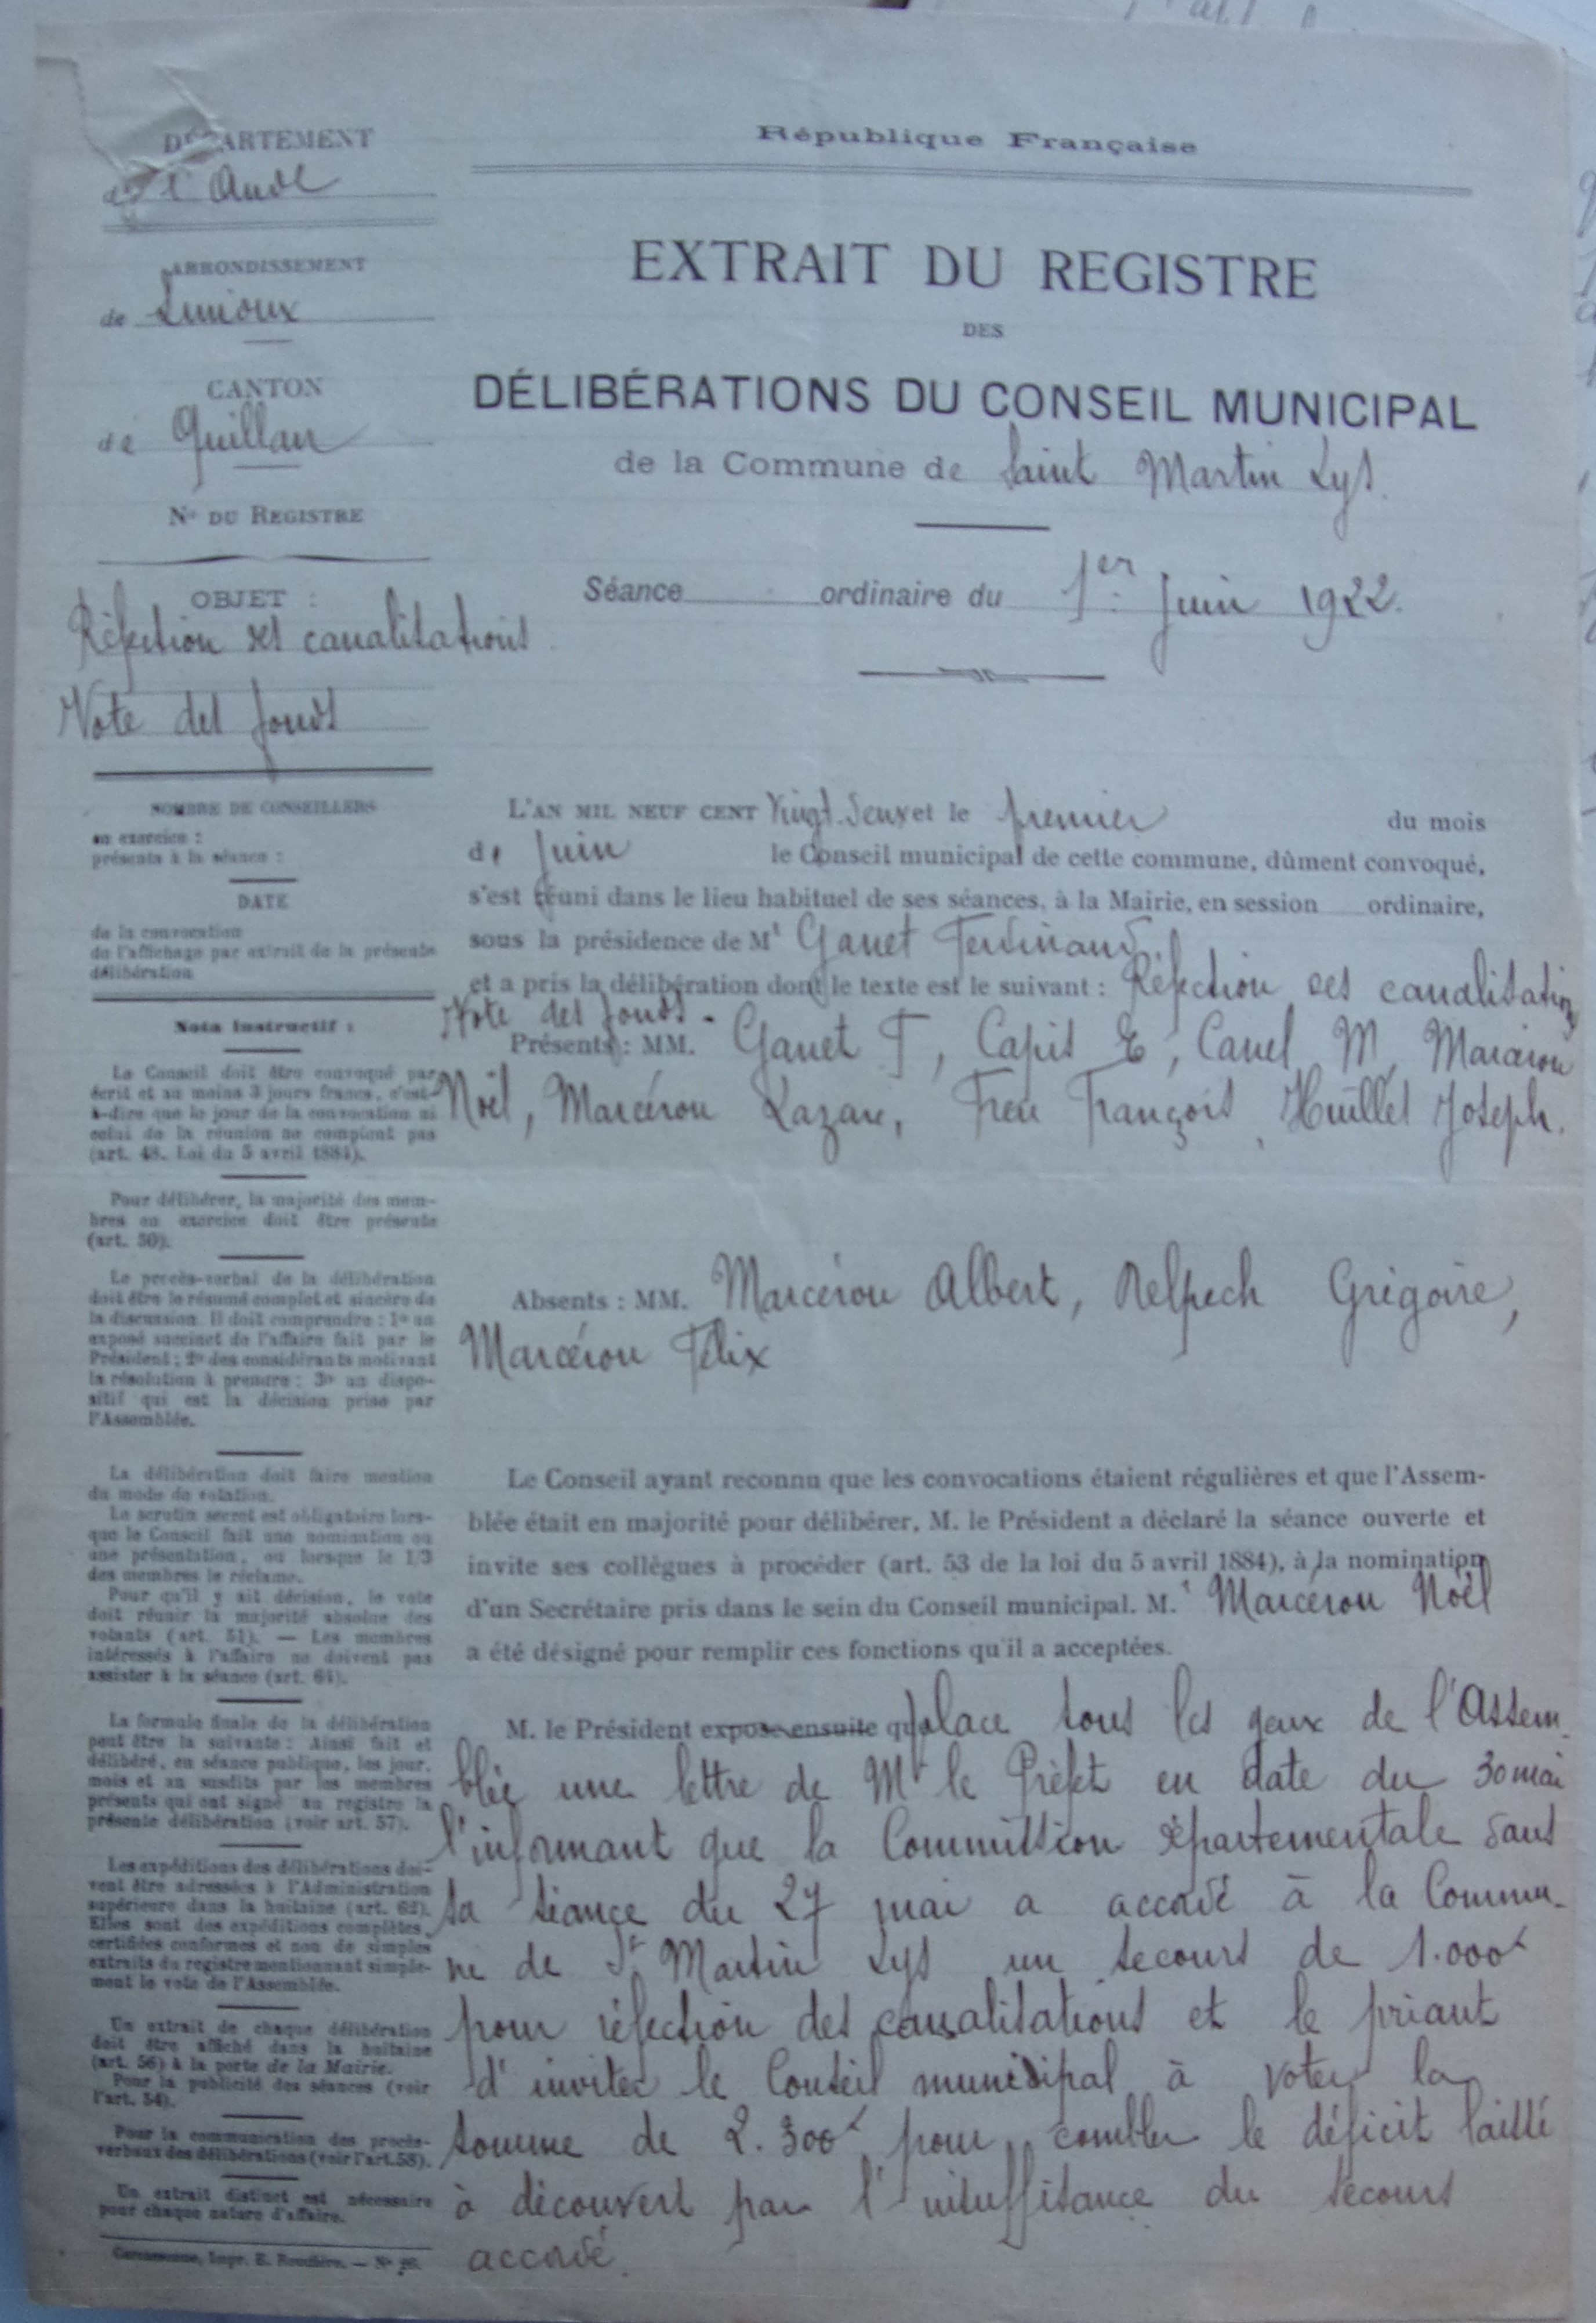 DÉPARTEMENT
de l'Aude
ARRONDISSEMENT
de Limoux
CANTON
de Quillan
No DU REGISTRE
OBJET :
Réfection des canalisations
Vote des fonds
NOMBRE DE CONSEILLERS
en exercice :
présents à la séance :
DATE
de la convocation
de l'affichage par extrait de la présente
délibération
Nota instructif :
Le Conseil doit être convoqué par
écrit et au moins 3 jours francs, c'est-
à-dire que le jour de la convocation ni
celui de la réunion ne comptent pas
(art. 48. Loi du 5 avril 1884).
Pour délibérer, la majorité des mem-
bres en exercice doit être présente
(art. 50).
Le procès-verbal de la délibération
doit être le résumé complet et sincère de
la discussion. Il doit comprendre : 1o un
exposé succinct de l'affaire fait par le
Président ; 2o des considérants motivant
la résolution à prendre ; 3o un dispo-
sitif qui est la décision prise par
l'Assemblée.
La délibération doit faire mention
du mode de votation.
Le scrutin secret est obligatoire lors-
que le Conseil fait une nomination ou
une présentation, ou lorsque le 1/3
des membres le réclame.
Pour qu'il y ait décision, le vote
doit réunir la majorité absolue des
votants (art. 51). — Les membres
intéressés à l'affaire ne doivent pas
assister à la séance (art. 64).
La formule finale de la délibération
peut être la suivante : Ainsi fait et
délibéré, en séance publique, les jour,
mois et an susdits par les membres
présents qui ont signé au registre la
présente délibération (voir art. 57).
Les expéditions des délibérations doi-
vent être adressées à l'Administration
supérieure dans la huitaine (art. 62).
Elles sont des expéditions complètes,
certifiées conformes et non de simples
extraits du registre mentionnant simple-
ment le vote de l'Assemblée.
Un extrait de chaque délibération
doit être affiché dans la huitaine
(art. 56) à la porte de la Mairie.
Pour la publicité des séances (voir
l'art. 54).
Pour la communication des procès-
verbaux des délibérations (voir l'art. 58).
Un extrait distinct est nécessaire
pour chaque nature d'affaire.
Carcassonne, Impr.
République Française
EXTRAIT DU REGISTRE
DES
DÉLIBÉRATIONS DU CONSEIL MUNICIPAL
de la Commune de Saint Martin Lys.
Séance ordinaire du 1er Juin 1922.
L'AN MIL NEUF CENT Vingt-deux et le premier du mois
de Juin le Conseil municipal de cette commune, dûment convoqué,
s'est réuni dans le lieu habituel de ses séances, à la Mairie, en session ordinaire,
sous la présidence de Mr Ganet Ferdinand
et a pris la délibération dont le texte est le suivant : Réfection des canalisations
Vote des fonds.
Présents : MM. Ganet F, Capis E, Canel M, Marcérou
Noël, Marcérou Lazare, Freu François, Huillet Joseph.
Absents : MM. Marcérou Albert, Delpech Grégoire,
Marcérou Félix
Le Conseil ayant reconnu que les convocations étaient régulières et que l'Assem-
blée était en majorité pour délibérer, M. le Président a déclaré la séance ouverte et
invite ses collègues à procéder (art. 53 de la loi du 5 avril 1884), à la nomination
d'un Secrétaire pris dans le sein du Conseil municipal. M. Marcérou Noël
a été désigné pour remplir ces fonctions qu'il a acceptées.
M. le Président expose ensuite que place sous les yeux de l'Assem-
blée une lettre de Mr le Préfet en date du 30 mai
l'informant que la Commission départementale dans
sa séance du 27 mai a accordé à la Commu-
ne de St Martin Lys un secours de 1.000f
pour réfection des canalisations et le priant
d'inviter le Conseil municipal à voter la
somme de 2.300f pour combler le déficit laissé
à découvert par l'insuffisance du secours
accordé.